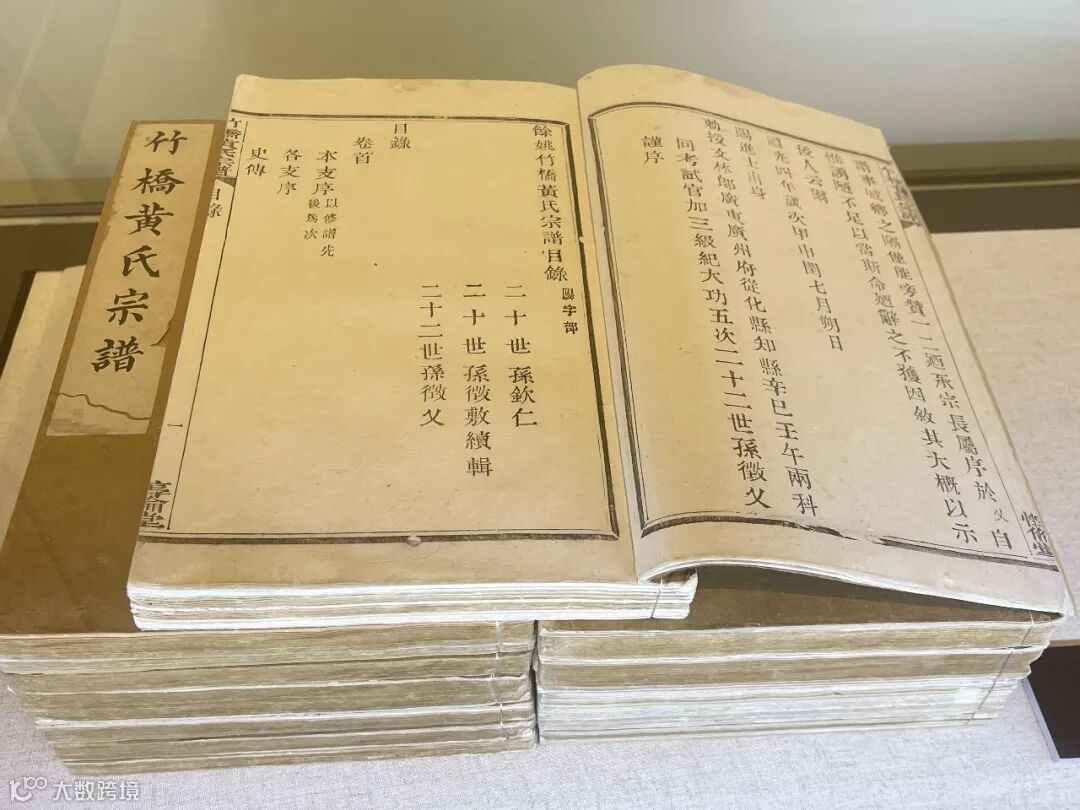 竹橋黃氏宗譜
譜事城鄉之隔僅能旁贊一二廼承宗長屬序於父自
惟譾陋不足以當斯命廼辭之不獲因敘其大概以示
後人云爾
道光四年歲次甲申閏七月朔日
賜進士出身
勅授文林郎廣東廣州府從化縣知縣辛巳壬午兩科
同考試官加三級紀大功五次二十二世孫徵父
謹序
惇倫堂
餘姚竹橋黃氏宗譜目錄 賜字部
二十世孫欽仁
二十世孫徵敷續輯
二十二世孫徵父
目錄
卷首
本支序以修譜先後爲次
各支序
史傳
竹橋黃氏宗譜 目錄 一 惇倫堂
大数跨境